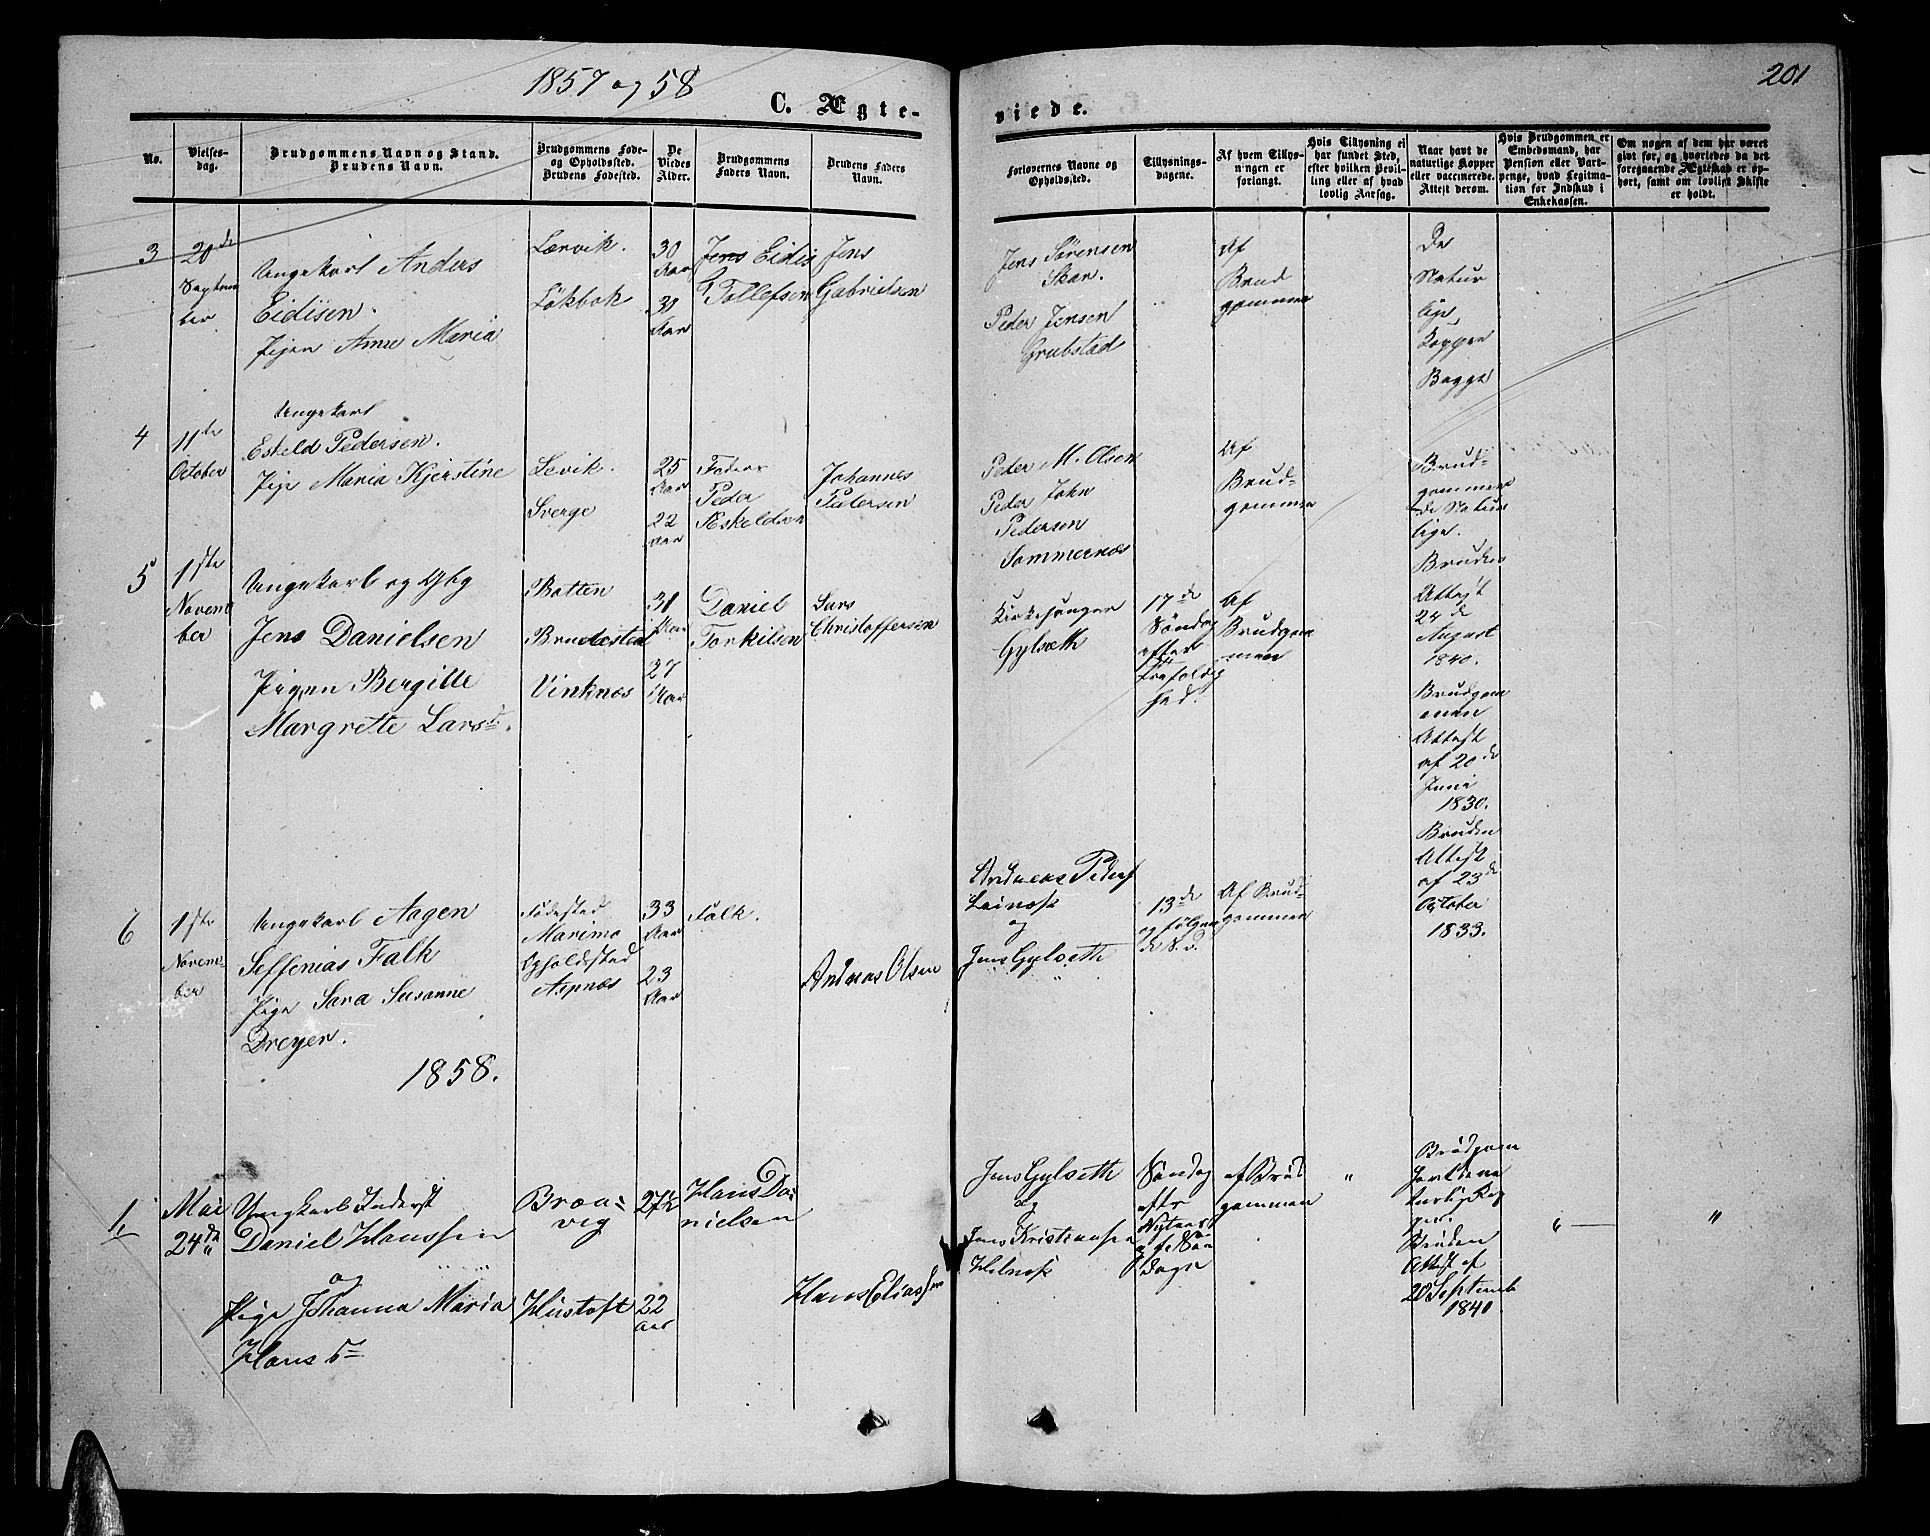 1857 og 58
201
C. Ægte-
viede.
No.
Vielses-
dag.
Brudgommens Navn og Stand.
Brudens Navn.
Brudgommens Føde-
og Opholdssted.
Brudens Fødested.
De
Viedes
Alder.
Brudgommens
Faders Navn.
Brudens Faders
Navn.
Forlovernes Navne og
Opholdssted.
Tillysnings-
dagene.
Af hvem Tillys-
ningen er
forlangt.
Hvis Tillysning ei
har fundet Sted,
efter hvilken Bevil-
ling eller af hvad
lovlig Aarsag.
Naar havt de
naturlige Kopper
eller vaccinerede.
Attest derom.
Hvis Brudgommen er
Embedsmand, har
Pension eller Vart-
penge, hvad Legitima-
tion for Indskud i
Enkekassen.
Om nogen af dem har været
gift før, og hvorledes da det
foregaaende Ægteskab er op-
hørt, samt om lovligt Skifte
er holdt.
3
20de
Septem
ber
Ungekarl Anders
Eidisen.
Pigen Anne Maria
Lærvik.
Løkbok
30
Aar
30
Aar
Jens Eidis
Tollefsen
Jens
Gabrielsen
Jens Sörensen
Skar.
Peder Jensen
Grubstad
Af
Brud
gommen
De
Natur
lige
Kopper
Begge
4
11te
October
Ungekarl
Eskeld Pedersen.
Pige Maria Kjerstine
Levik.
Sverge
25
Aar
22
Aar
Fader
Peder
Æskeldsen
Johannes
Petersen
Peder M. Olsen
Peder John
Pedersen
Sommernæs
Af
Brud-
gommen
Brud-
gommen
de Natur
lige.
Bruden
Attest
24de
August
1840.
5
1ste
Novem
ber
Ungekarl og Gbg
Jens Danielsen
Pigen Bergitte
Margrette Larsd.
Botten
Brudested
Vinknæs
31
Aar
27
Aar
Daniel
Torkilsen
Lars
Christoffersen
Kirkesanger
Gylseth
17de
Söndag
efter
Trefoldig
hed.
Af
Brudgom
men
Brudgom
men
Attest
af 20de
Juni
1830.
Bruden
Attest
af 23de
October
1833.
6
1ste
Novem-
ber
Ungekarl Aagen
Seffenias Falk
Pige Sara Susanne
Dreyer.
Födested
Maremo
Opholdsted
Aspnæs
33
Aar
23
Aar
Falk.
Andreas Olsen
Andreas Peders
Leines
og
Jens Gylseth
13de
og fölgen
de S.d.
Af Brud-
gommen
1858.
1,
Mai
24de
Ungkarl Inderst
Daniel Hanssen
og
Pige Johanna Maria
Hans D
Bræa-
vig
Hustoft
27½
22
aar
Hans Da-
nielsen
Hans Eliassen
Jens Gylseth
og
Jens Kristiansen
Helnes
Söndag
efter
Nytaar
Dage
af Brud
gommen
"
Brudgom
Bruden
Attest af
20 September
1840
" —
"